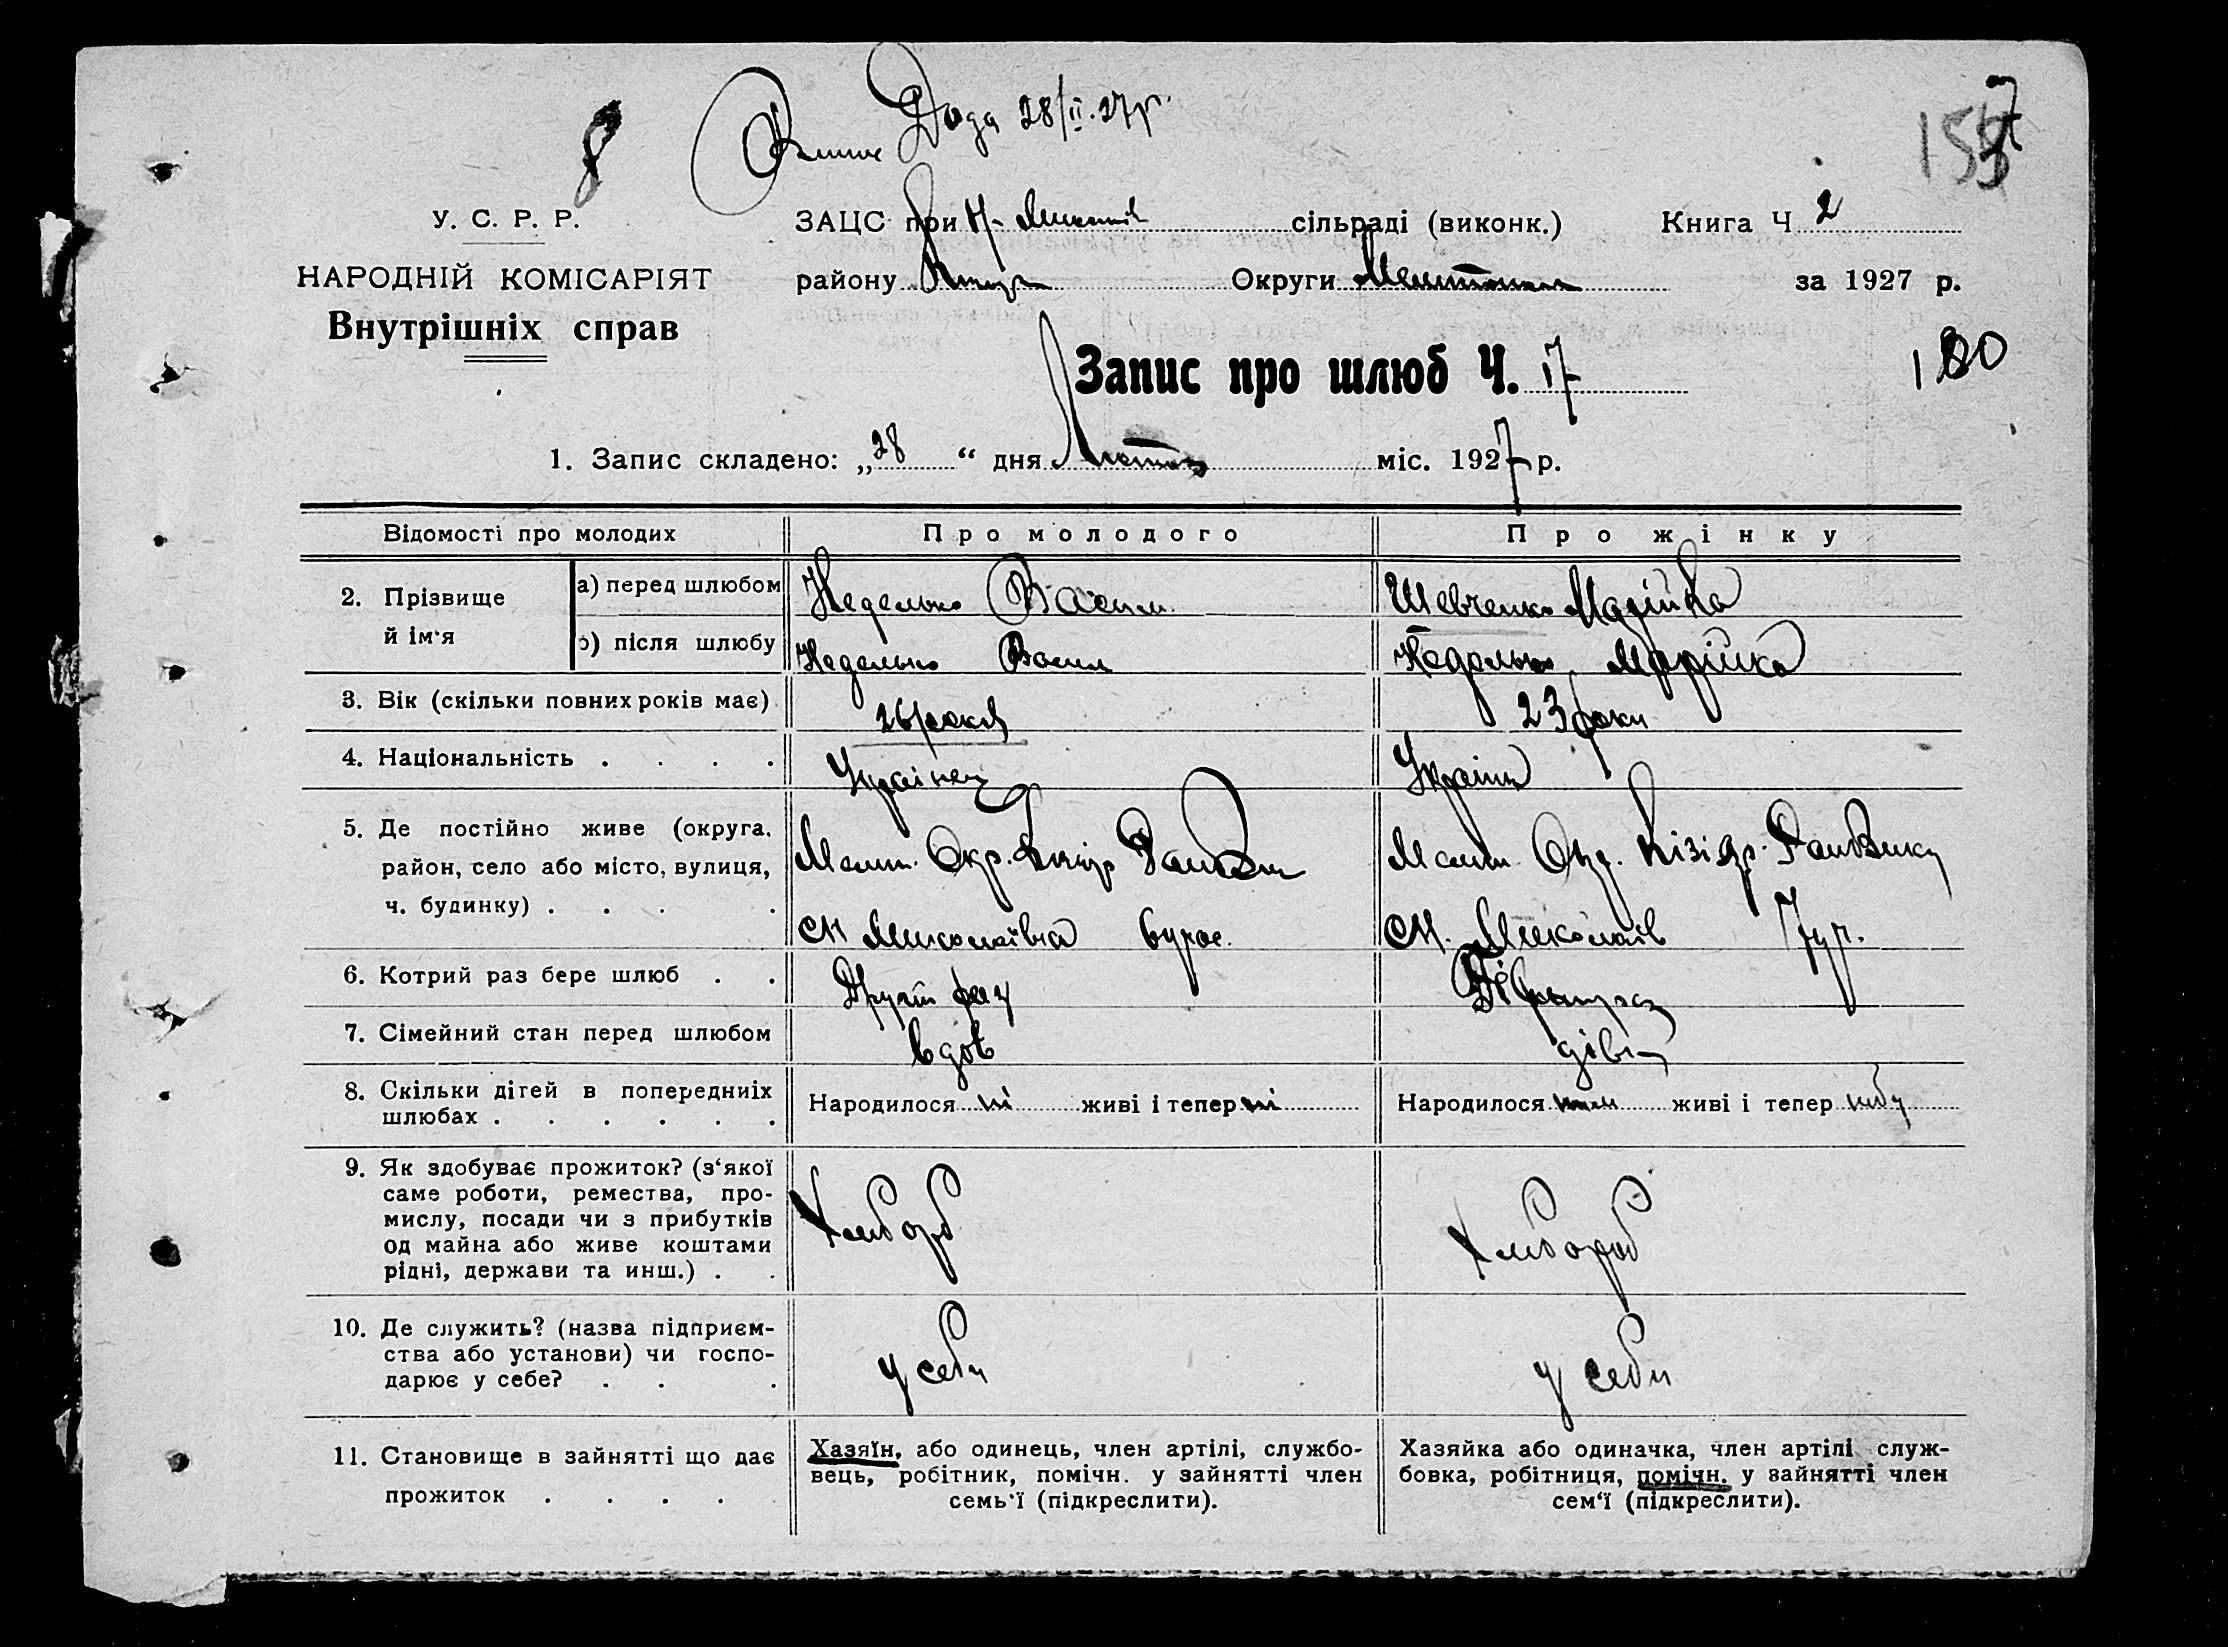 8
Дода 28/II.27р.
157
У. С. Р. Р.
ЗАЦС при Н- сільраді (виконк.) Книга Ч 2
НАРОДНІЙ КОМІСАРІЯТ
району Округи за 1927 р.
Внутрішніх справ
Запис про шлюб Ч. 17
180
1. Запис складено: „28“ дня Лютого міс. 1927 р.
Відомості про молодих
Про молодого
Про жінку
2. Прізвище й ім‘я
а) перед шлюбом
Неделько Василь
Шевченко Марійка
б) після шлюбу
Неделько Василь
Неделько Марійка
3. Вік (скільки повних років має)
26 років
23 роки
4. Національність . . . .
Українец
Україн
5. Де постійно живе (округа,
район, село або місто, вулиця,
ч. будинку) . . . .
Мелит. Окр.
СН Миколаївка
Мелит. Окр.
СН. Миколаїв
6. Котрий раз бере шлюб . .
Другий раз
Перший раз
7. Сімейний стан перед шлюбом
вдов
дівиц
8. Скільки дітей в попередниіх
шлюбах . . . . . .
Народилося ні живі і тепер ні
Народилося живі і тепер
9. Як здобуває прожиток? (з‘якої
саме роботи, ремества, про-
мислу, посади чи з прибутків
од майна або живе коштами
рідні, держави та инш.) . .
Хлібороб
Хлібороб
10. Де служить? (назва підприєм-
ства або установи) чи госпо-
дарює у себе? . . .
у себи
у себи
11. Становище в зайнятті що дає
прожиток . . . .
Хазяїн, або одинець, член артілі, службо-
вець, робітник, помічн. у зайнятті член
семь‘ї (підкреслити).
Хазяйка або одиначка, член артілі служ-
бовка, робітниця, помічн. у зайнятті член
сем‘ї (підкреслити).